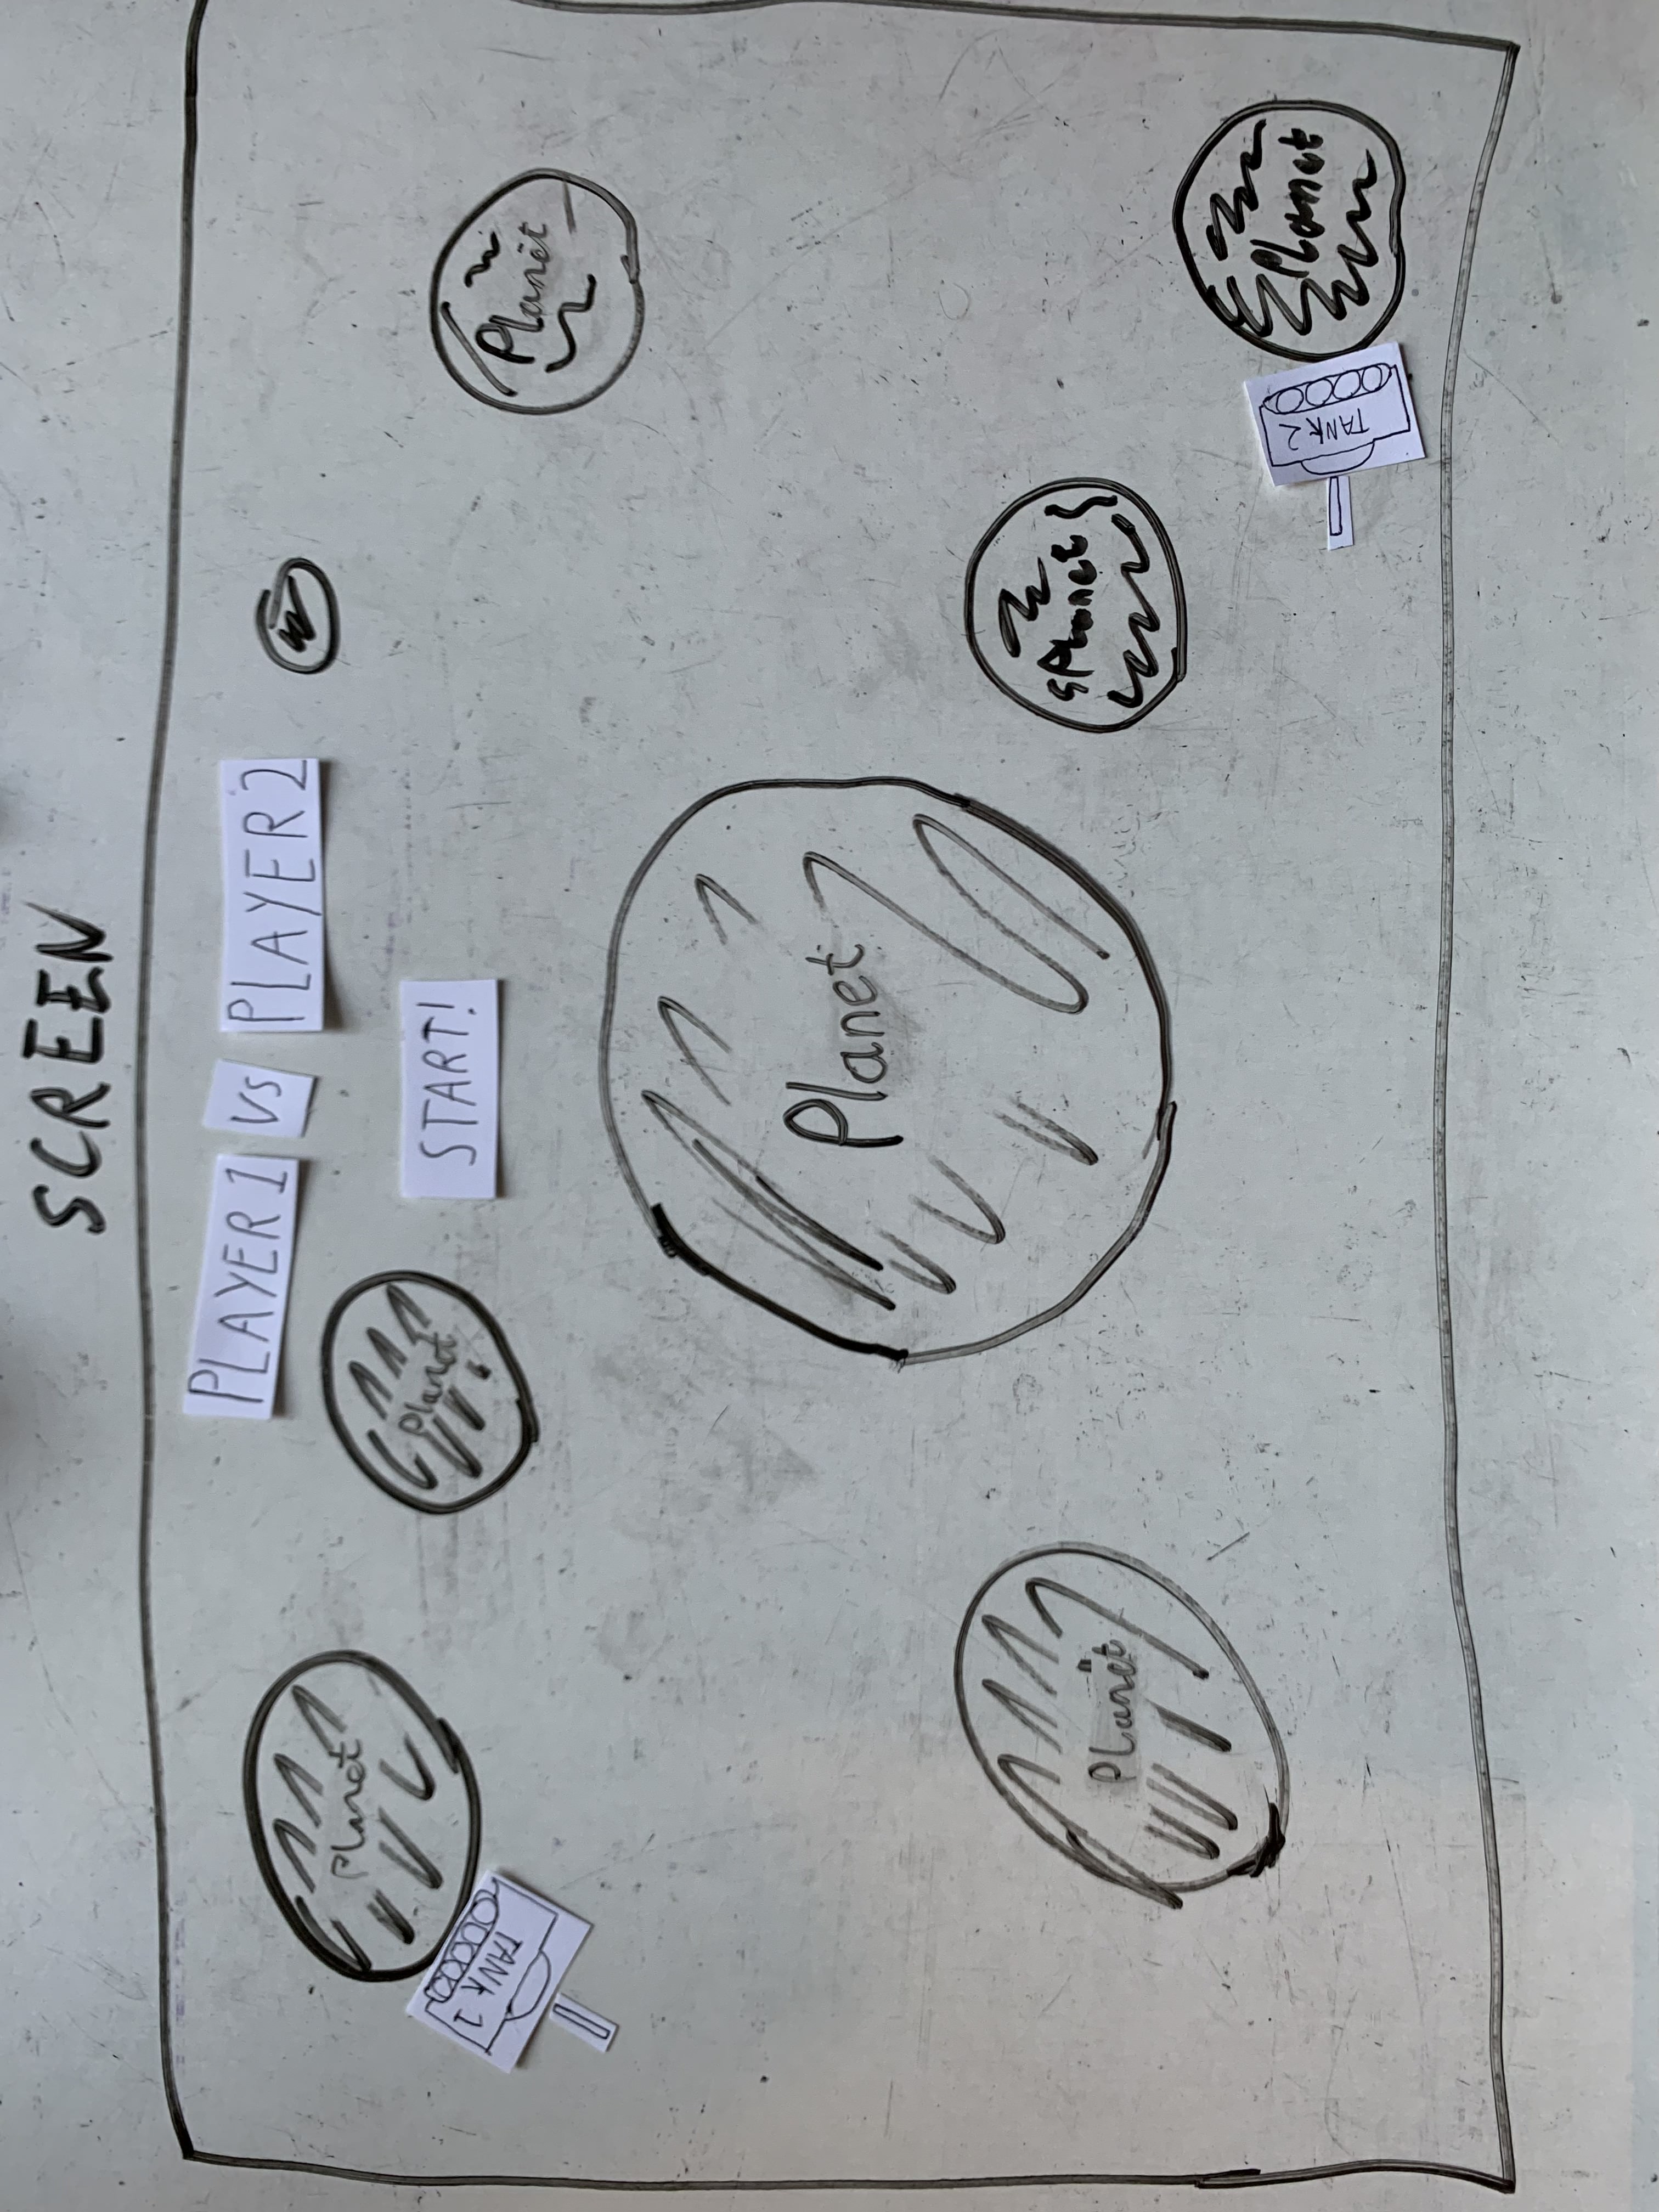 SCREEN
PLAYER 1 VS PLAYER 2
Planet
Planet
START!
TANK 1
Planet
Planet
Planet
Planet
TANK 2
Planet